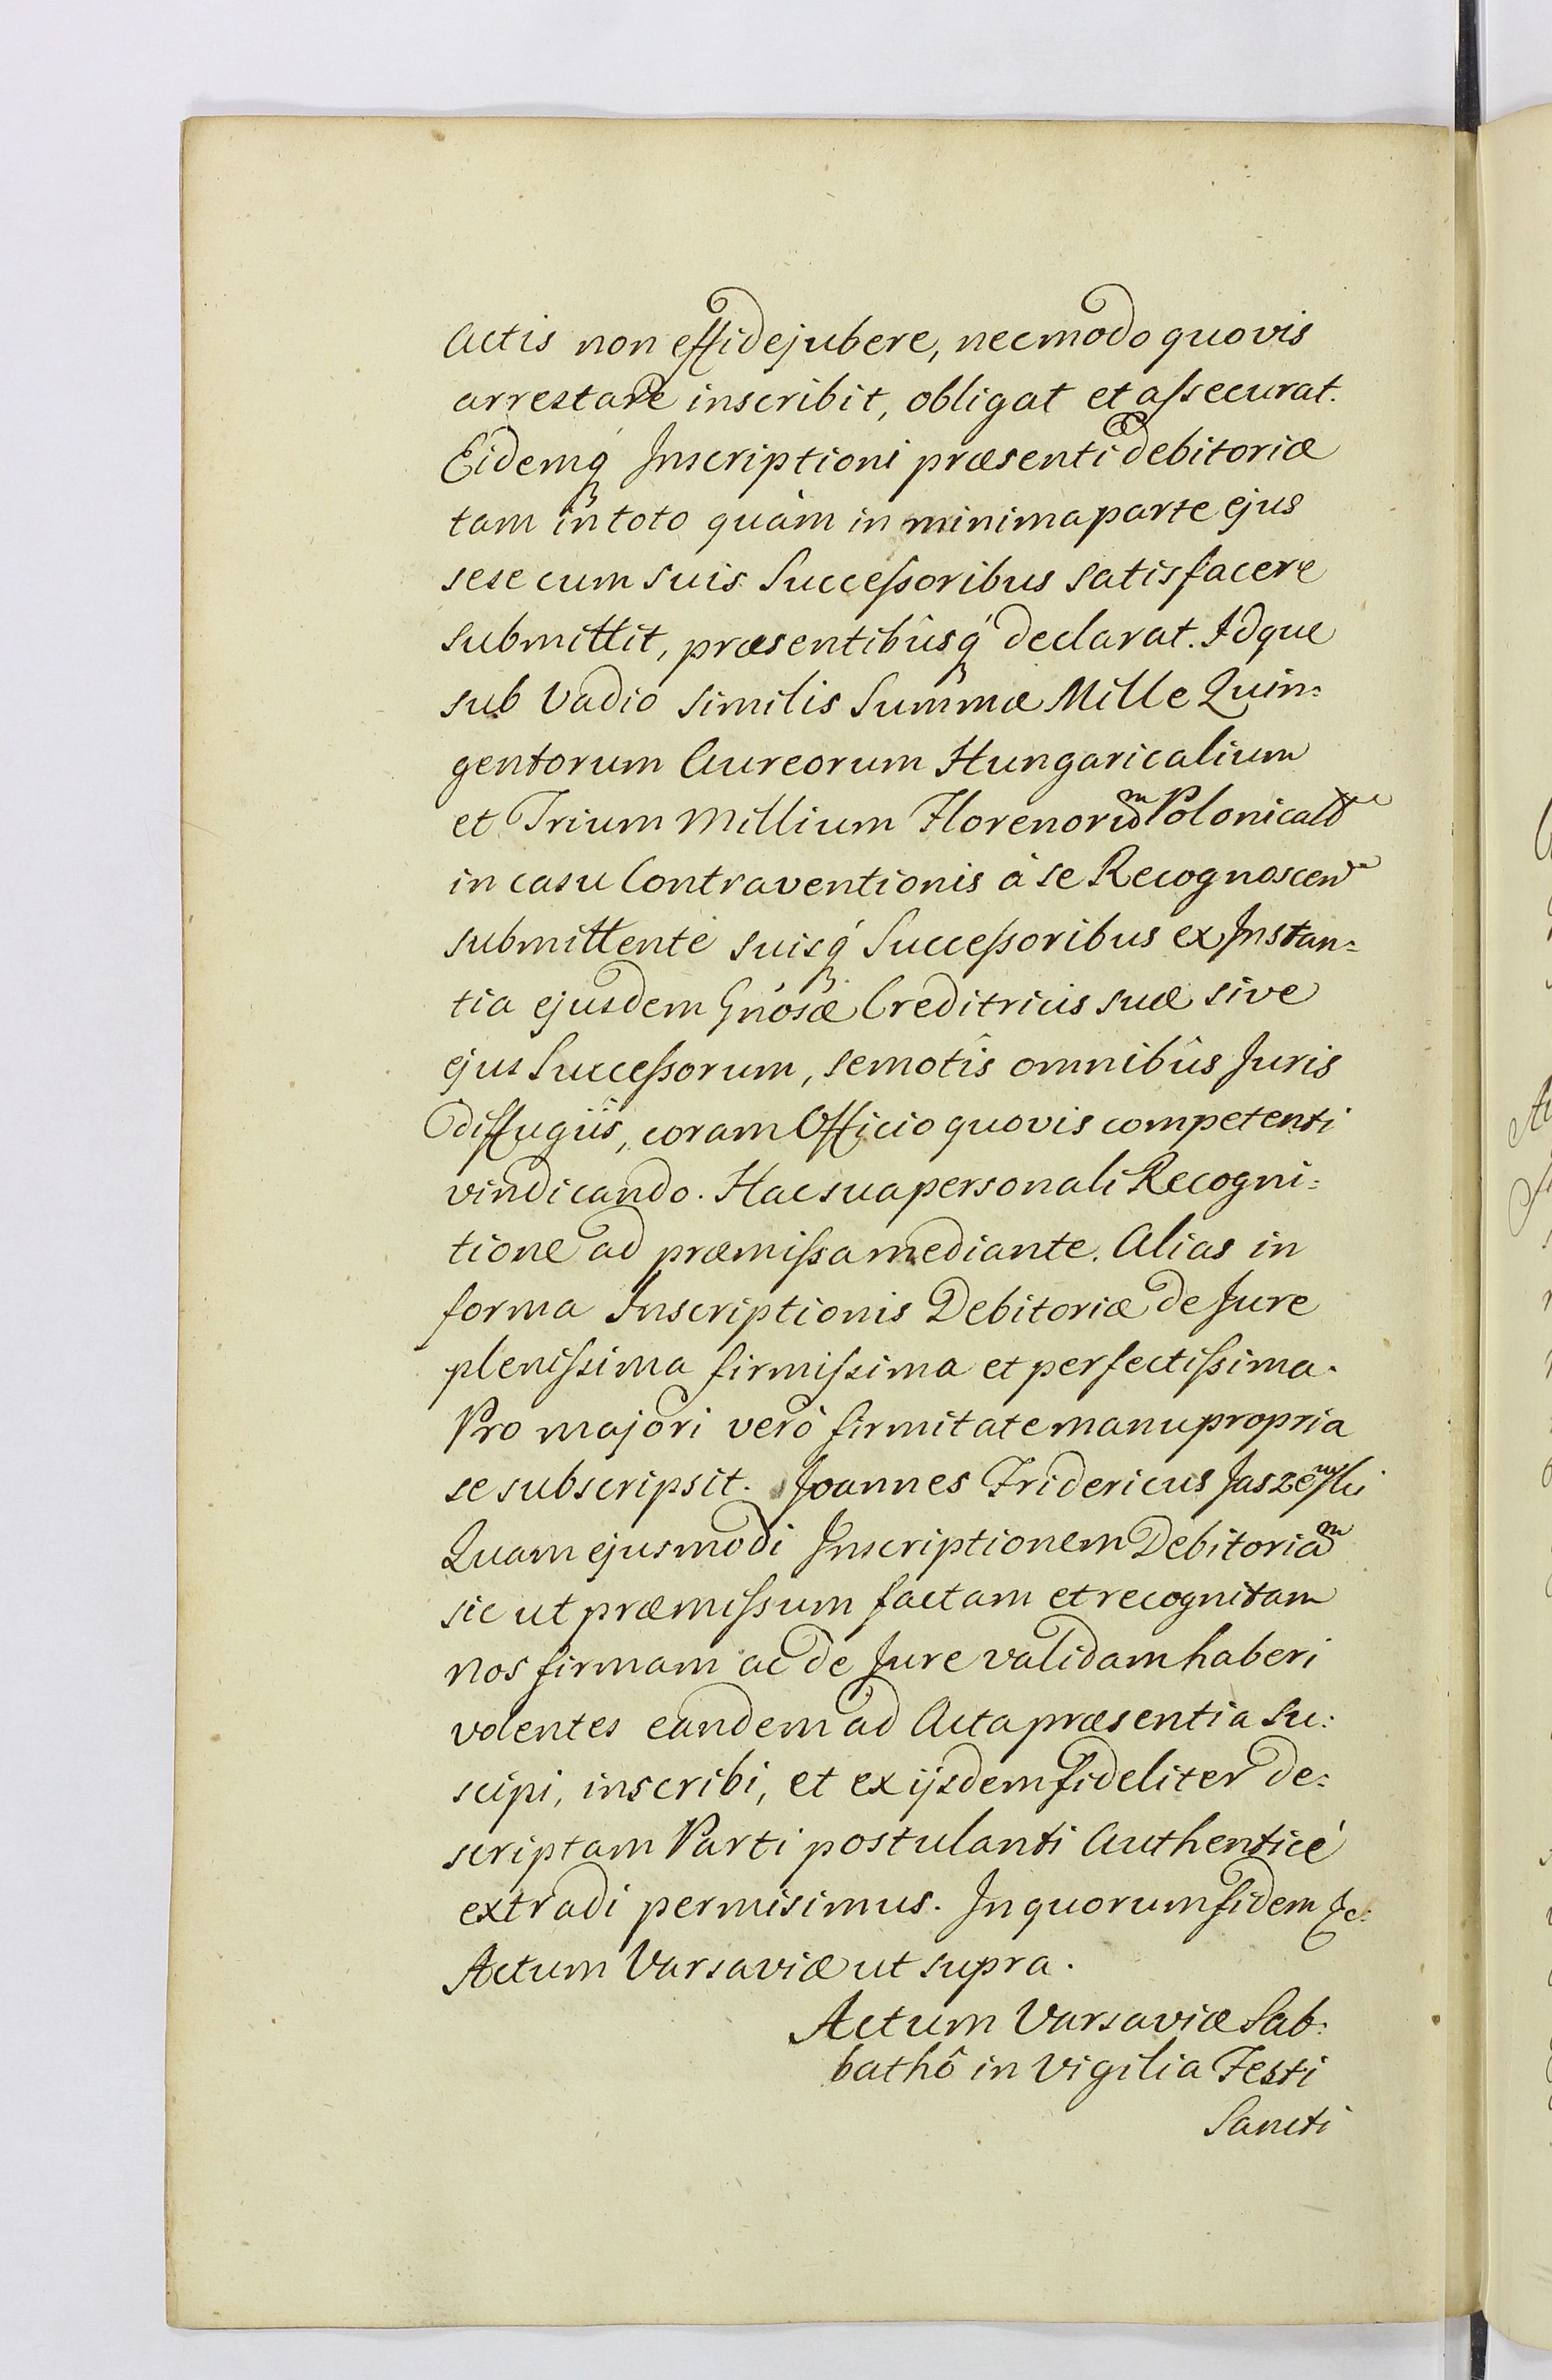 Actis non effidejubere, nec modo quovis
arrestare inscribit, obligat et assecurat.
Eidemq́ Inscriptioni præsenti debitoriæ
tam in toto quàm in minima parte ejus
sese cum suis Successoribus satisfacere
submittit, præsentibûsq́ declarat. Idque
sub Vadio similis Summæ Mille Quin=
gentorum Aureorum Hungaricalium
et Trium Millium Florenorum Polonical
in casu Contraventionis à se Recognoscen
submittente suisq́ Successoribus ex Instan=
tia ejusdem Gnosæ Creditricis suæ sive
ejus Successorum, semotîs omnibûs Juris
diffugiîs, coram Officio quovis competenti
vindicando. Hac sua personali Recogni=
tione ad præmissa mediante. Alias in
forma Inscriptionis Debitoriæ de Jure
plenissima firmissima et perfectissima.
Pro majori verò firmitate manu propria
se subscripsit. Joannes Fridericus Jaszewski
Quam ejusmodi Inscriptionem Debitoriam
sic ut præmissum factam et recognitam
nos firmam ac de Jure validam haberi
volentes eandem ad Acta præsentia su:
scipi, inscribi, et ex ijsdem fideliter de:
scriptam Parti postulanti Authenticè
extradi permisimus. In quorum fidem &c:
Actum Varsaviæ ut supra.
Actum Varsaviæ Sab:
bathô in Vigilia Festi
Sancti